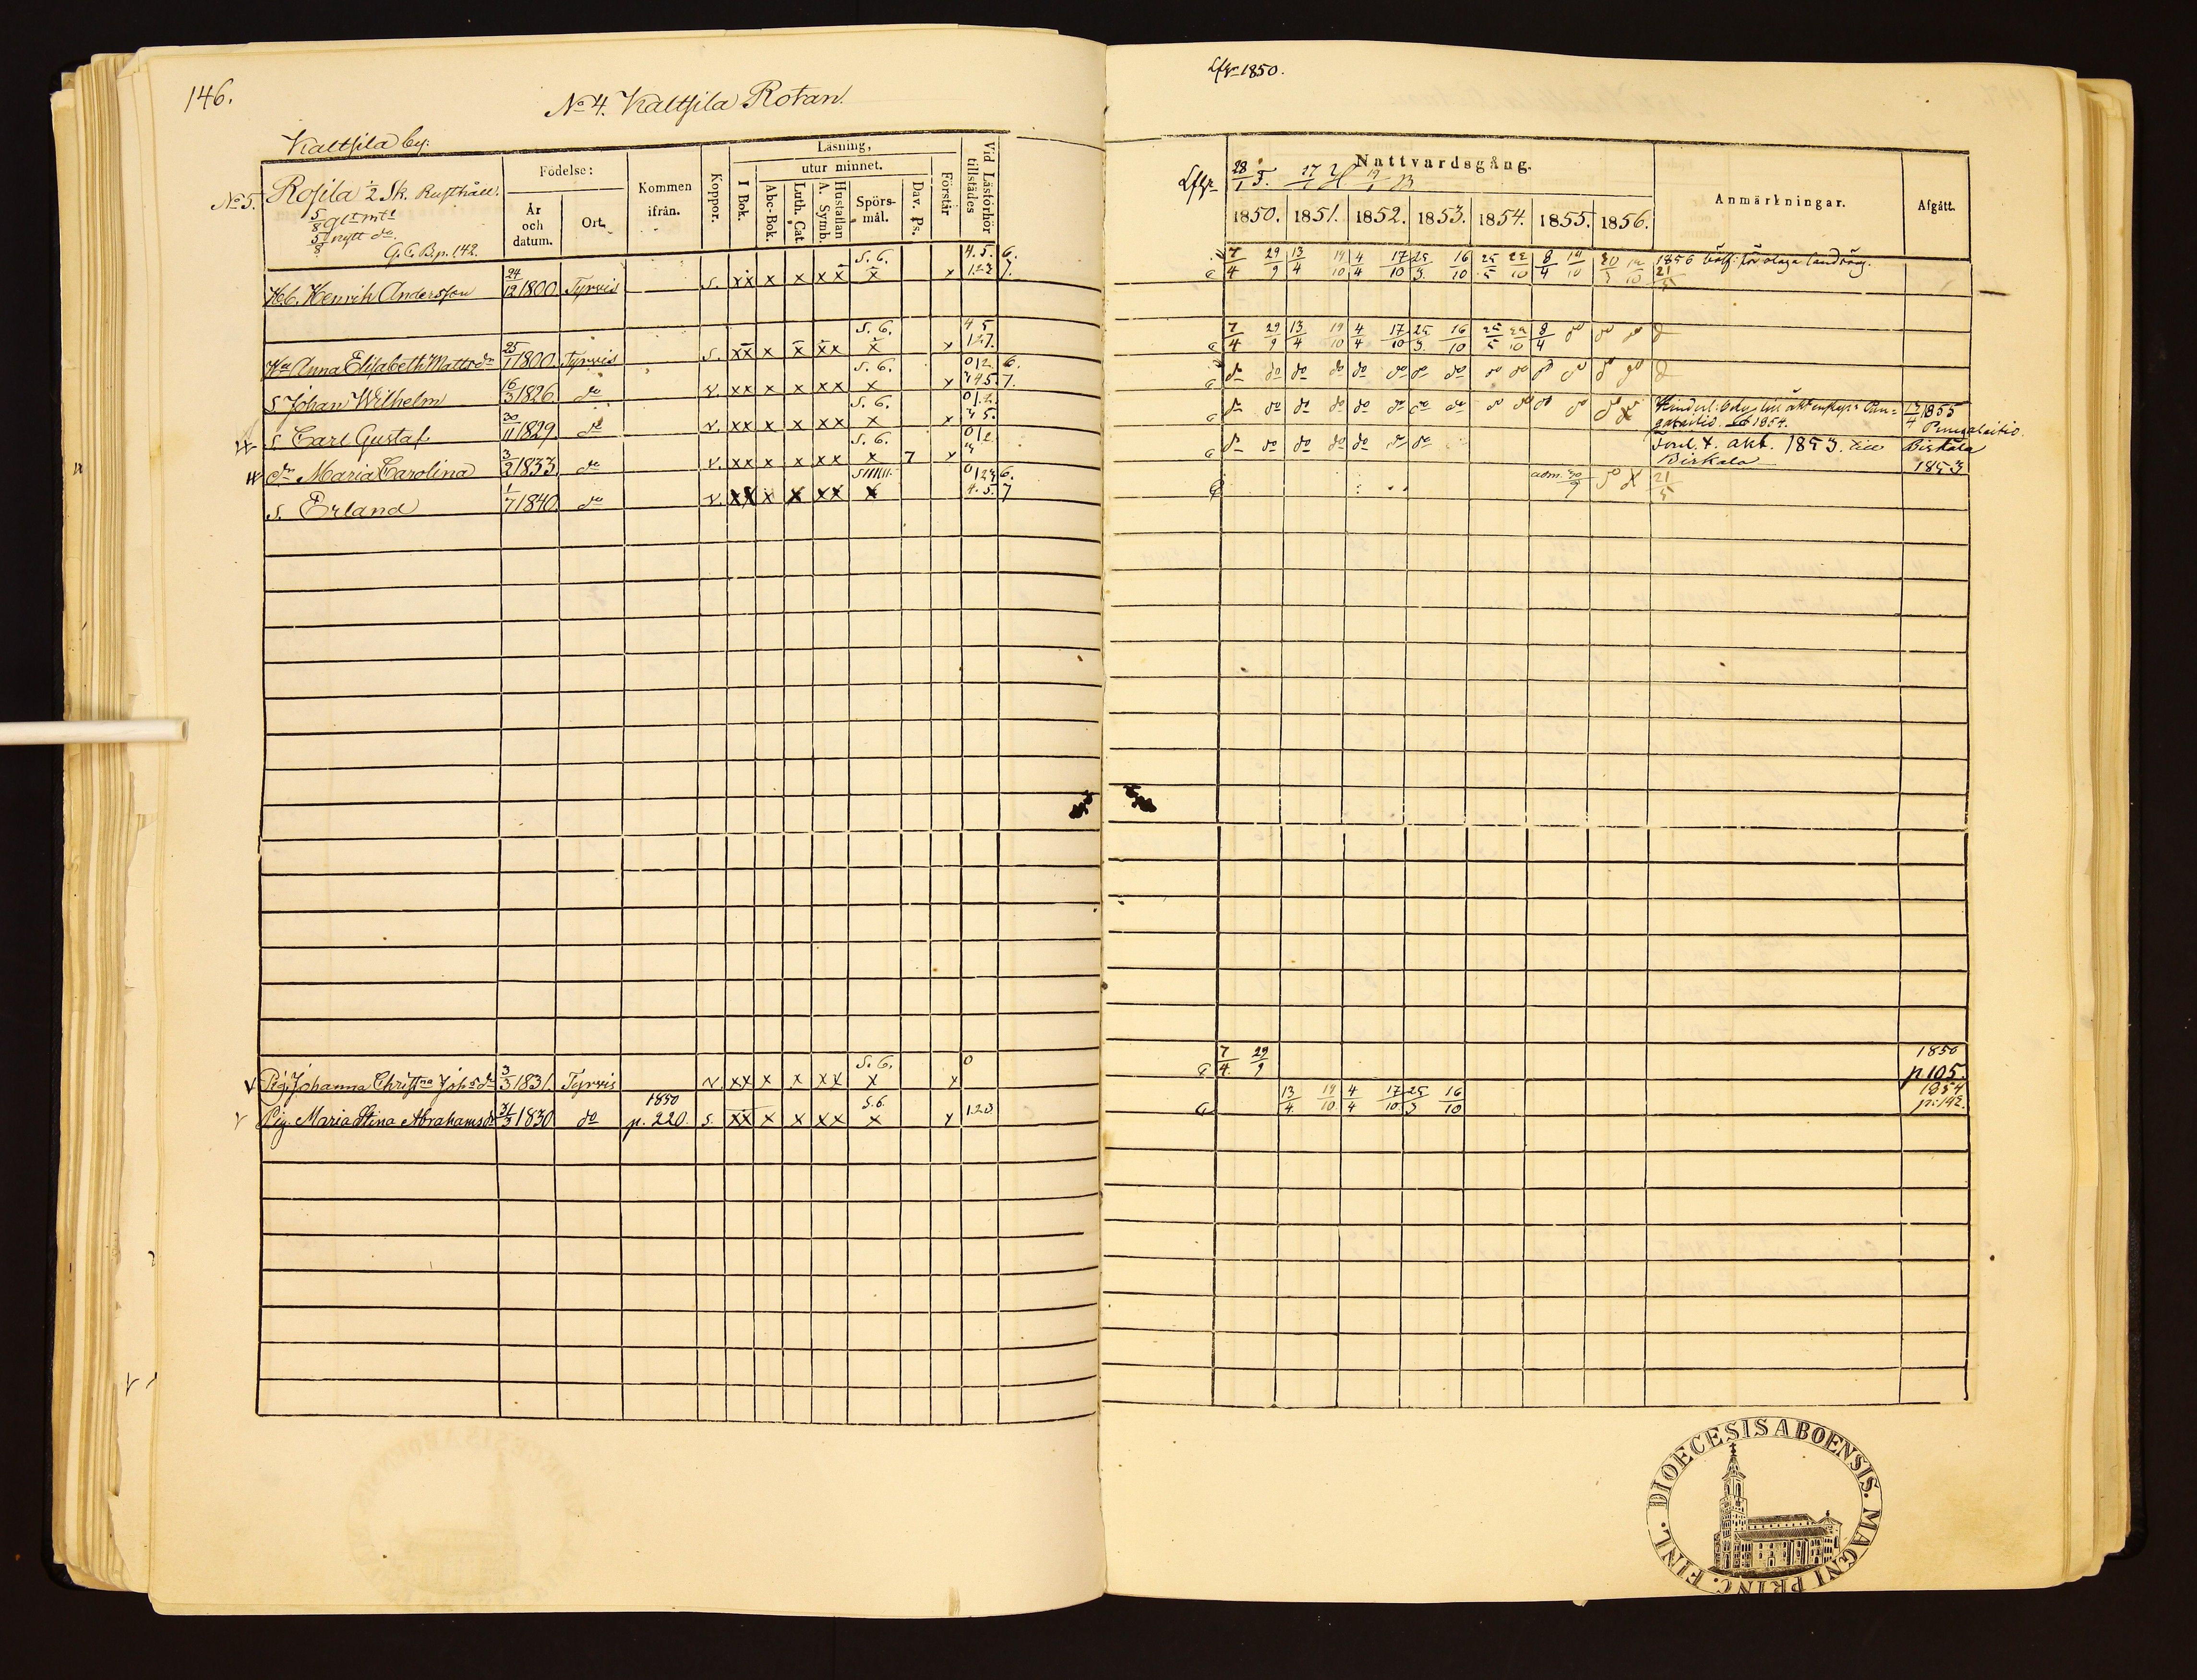 146.
No 4. Kaltsila Rotan.
Kaltsila by:
No 5.
Rosila 1/2 Sk. Rusthåll.
5/8 glt mtl
5/8 nytt do
G. C. B. p. 142.
Födelse:
År och datum.
Ort.
Kommen ifrån.
Koppor.
Läsning,
I Bok.
utur minnet.
Abc-Bok.
Luth. Cat.
Hustaflan A. Symb.
Spörsmål.
Dav. Ps.
Förstår
Vid Läsförhör tillstädes
Hb. Henrik Andersson 24/12 1800. Tyrvis s. xx x x xx S. 6. x x 4. 5. 6. 1.2.3 7.
Ha Anna Elisabeth Mattsdr 25/1 1800. Tyrvis s. xx x x xx S. 6. x x 4 5 1.2.7.
S. Johan Wilhelm 16/3 1826. do v. xx x x xx S. 6. x x 0 1 2. 6. 3 4 5. 7.
S. Carl Gustaf 30/11 1829. do v. xx x x xx S. 6. x x 0 1. 2. 3 5.
dr Maria Carolina 3/2 1833 do v. xx x x xx S. 6. x 7 x 0 1 2
S. Erland 1/7 1840 do v. xx x x xx x 0 1 2 3 6. 4. 5. 7
Pig. Johanna Christna Jöhsdr 3/3 1831. Tyrvis v. xx x x xx S. 6. x x 0
Pig. Maria Stina Abrahamsdr 31/3 1830 do 1850 p. 220. s. xx x x xx S. 6. x x 1.2.3
Lfgr 1850.
Lflgr
28/1 5. 17/1 19/1
Nattvardsgång.
1850. 1851. 1852. 1853. 1854. 1855. 1856.
Anmärkningar.
Afgått.
7/4 29/9 13/4 19/10 4/4 17/10 25/3. 16/10 25/5 22/10 8/4 14/10 1856 för olaga
21/5
7/4 29/9 13/4 19/10 4/4 17/10 25/3. 16/10 25/5 22/10 8/4 do do do
do do do do do do do do do do do do do do
do do do do do do do do do do do do do Hinderl: bety till äktenskap i Pungalaitio. 1854. 17/4 1855 Pungalaitio.
do do do do do do do t. äkt. 1853. till Birkala Birkala 1853
adm. 30/9 do 21/5
7/4 29/9 1850 p 105.
13/4 19/10 4/4 17/10 25/3 16/10 1854 p: 142.
DIOECESIS ABOENSIS. MAGNI PRINC. FINL.